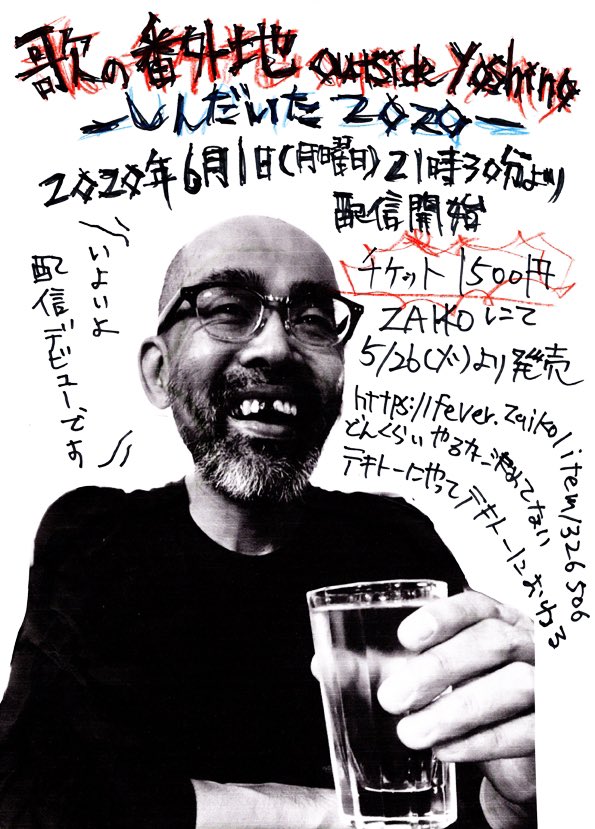 歌の番外地 outside yoshino
ーしんだいた2020ー
2020年6月1日(月曜日)21時30分より
配信開始
いよいよ
配信デビューです
チケット 1500円
ZAIKOにて
5/26(火)より発売
https://fever.zaiko/item/326506
どんくらいやるか決めてない
テキトーにやってテキトーにおわる